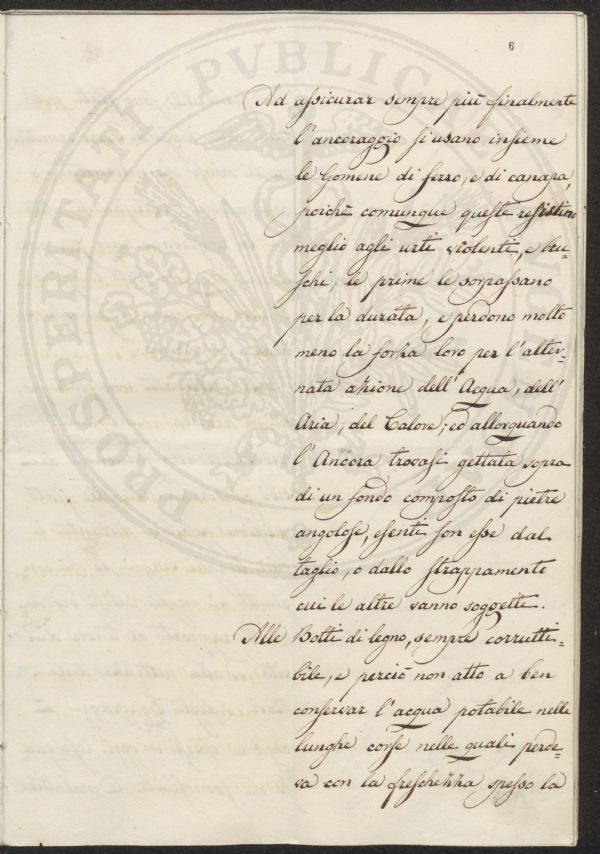 6
Ad assicurar sempre più finalmente
l'ancoraggio si usano insieme
le Gomene di ferro, e di canapa,
poichè comunque queste resistino
meglio agli urti violenti, e bru-
schi, le prime le sorpassano
per la durata, e perdono molto
meno la forza loro per l'alter-
nata azione dell'Acqua, dell'
Aria, del Calore; ed allorquando
l'Ancora trovasi gettata sopra
di un fondo composto di pietre
angolose, esenti son esse dal
taglio, o dallo strappamento
cui le altre vanno soggette.
Alle Botti di legno, sempre corrutti-
bile, e perciò non atto a ben
conservar l'acqua potabile nelle
lunghe corse nelle quali perde-
va con la freschezza spesso la
PROSPERITATI PVBLICAE